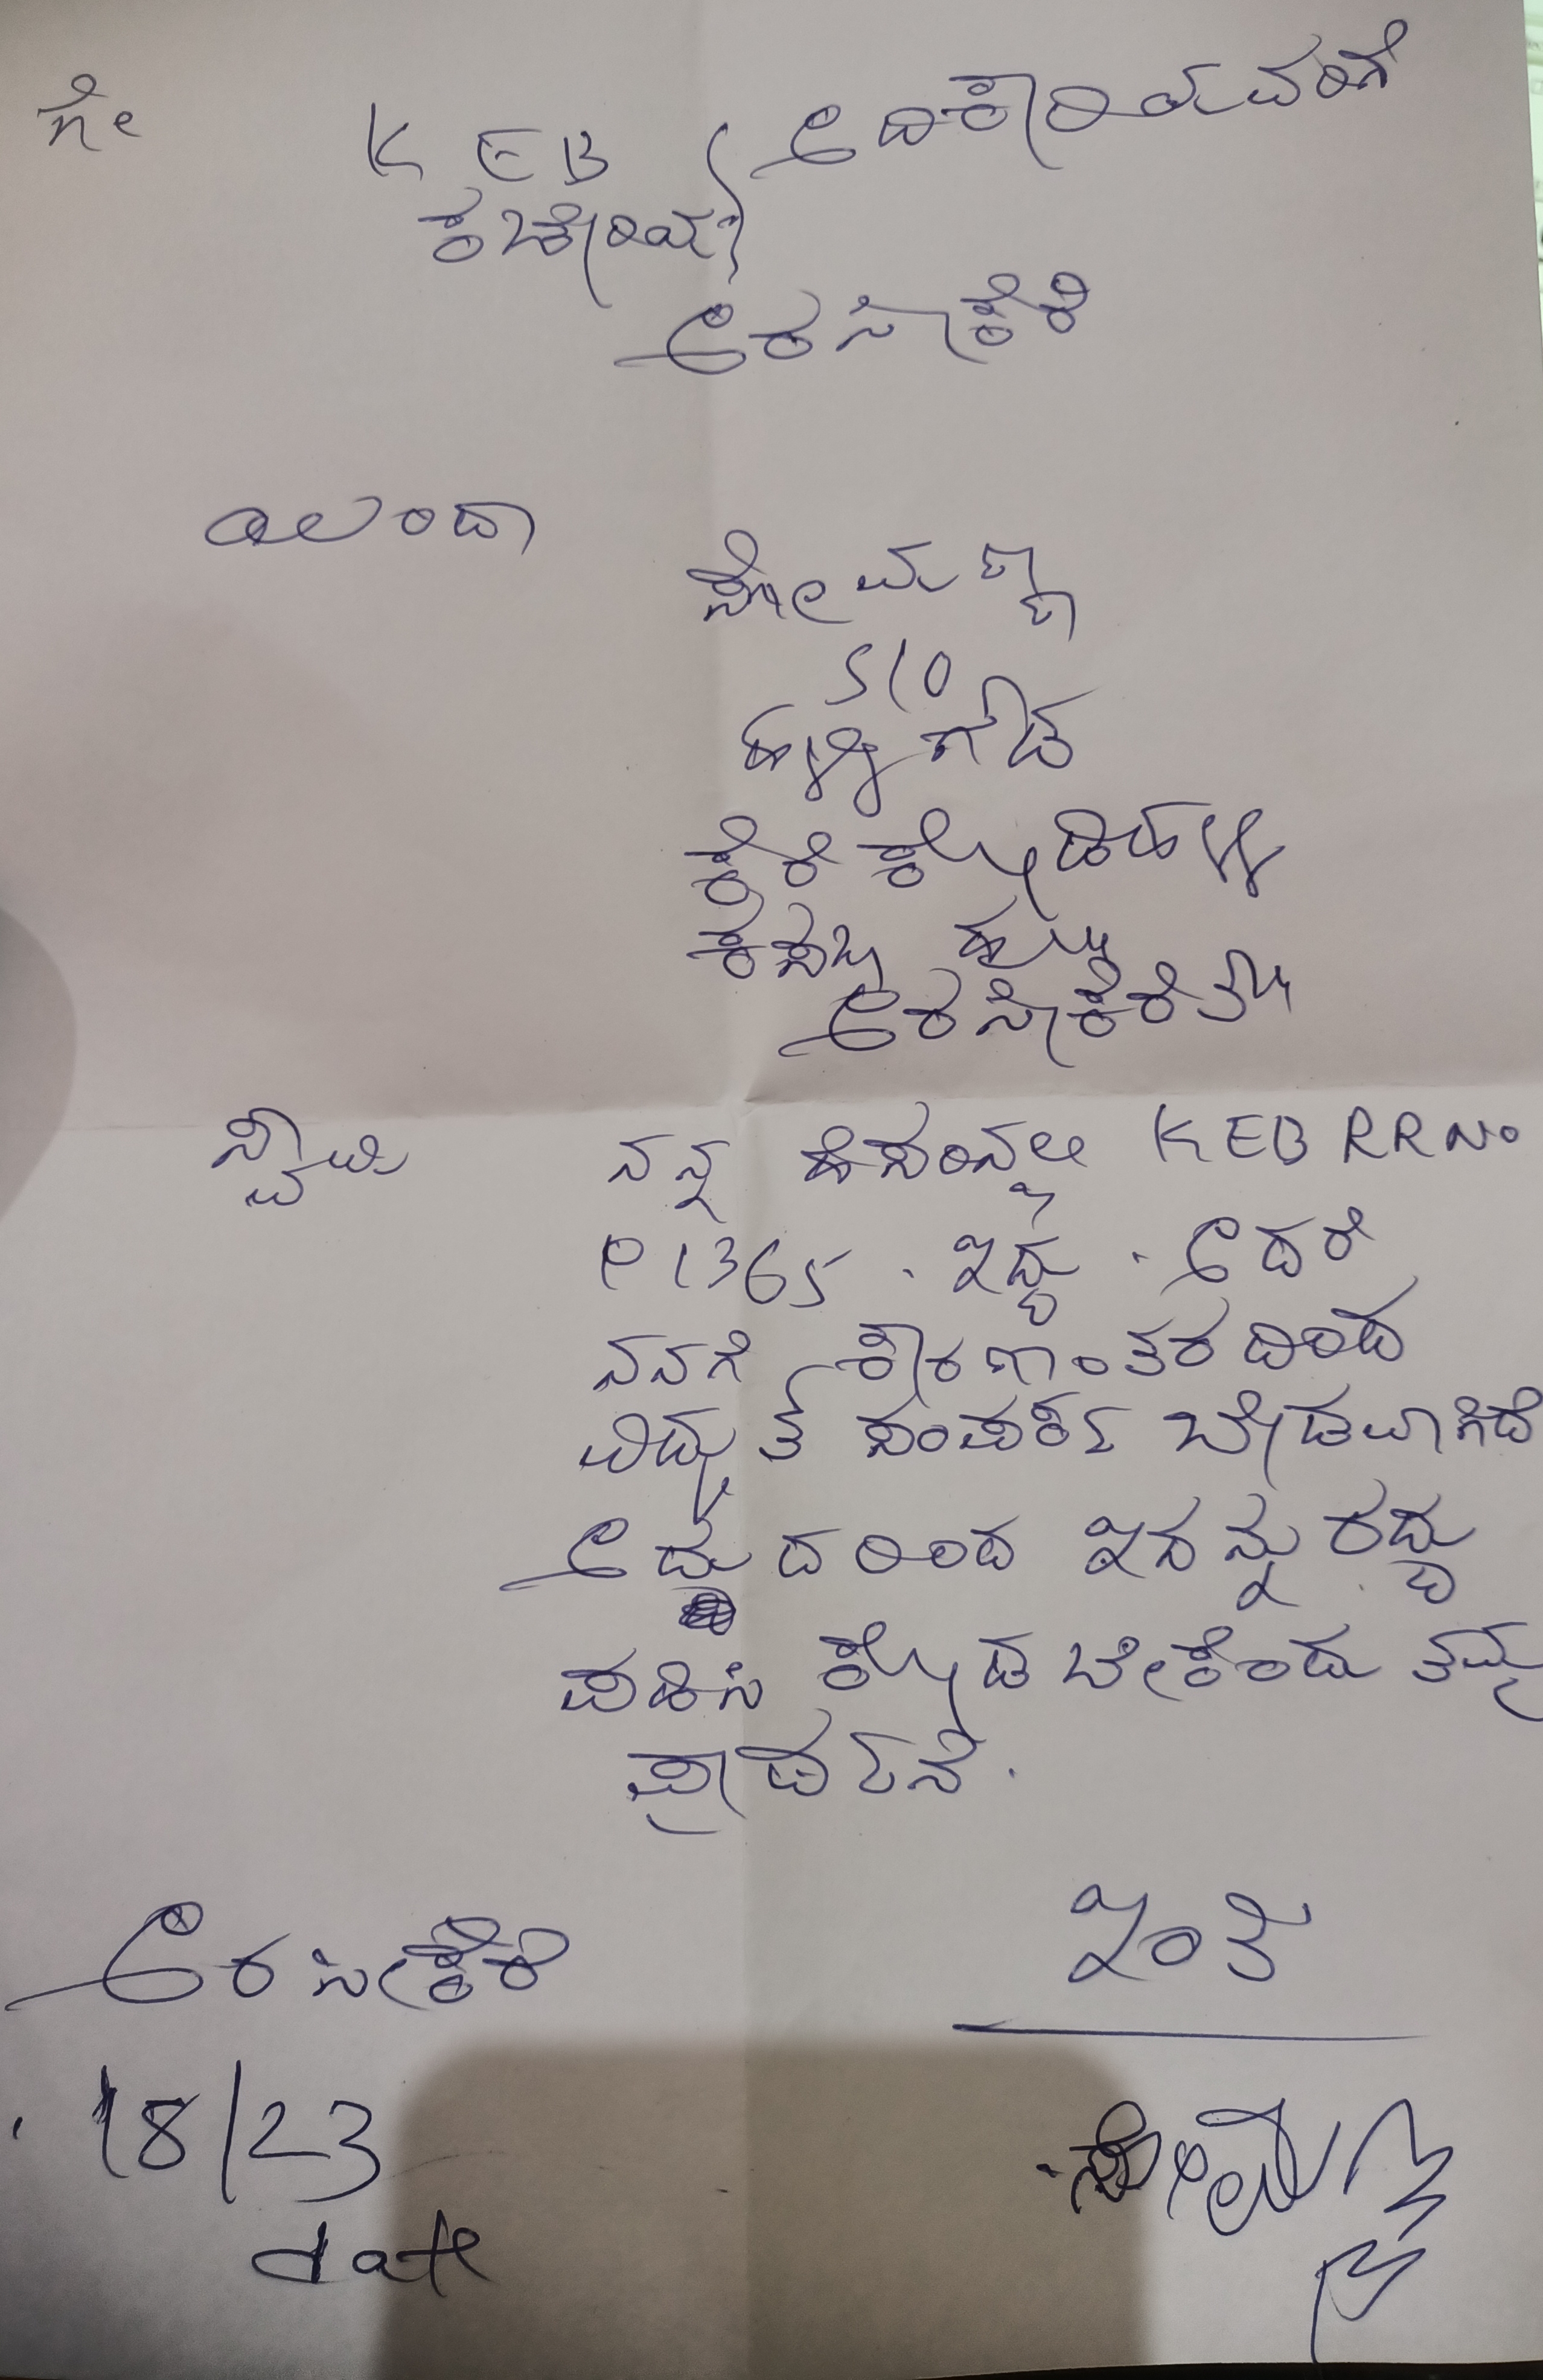 ಗೇ
KEB ಅದಿಕಾರಿಯವರಿಗೆ
ಕಛೇರಿಯ
ಅರಸೀಕೆರೆ
ಯಿಂದಾ
ಸೋಮಣ್ಣ
S/O
ಹಳ್ಳಿಗೌಡ
ಕೆರೆಕೋಡಿಹಳ್ಳಿ
ಕಸಬಾ ಹೋ
ಅರಸೀಕೆರೆ ತಾ
ಸ್ವಾಮಿ ನನ್ನ ಹೆಸರಿನಲ್ಲಿ KEB RR No
P1365 . ಇದ್ದು . ಆದರೆ
ನನಗೆ ಕಾರಣಾಂತರದಿಂದ
ವಿದ್ಯುತ್ ಸಂಪರ್ಕ ಬೇಡವಾಗಿದೆ
ಆದ್ದುದರಿಂದ ಇದನ್ನು ರದ್ದು
ಪಡಿಸಿ ಕೊಡಬೇಕೆಂದು ತಮ್ಮ
ಪ್ರಾರ್ಥನೆ.
ಅರಸೀಕೆರೆ ಇಂತಿ
18/23
date ಸೋಮಣ್ಣ